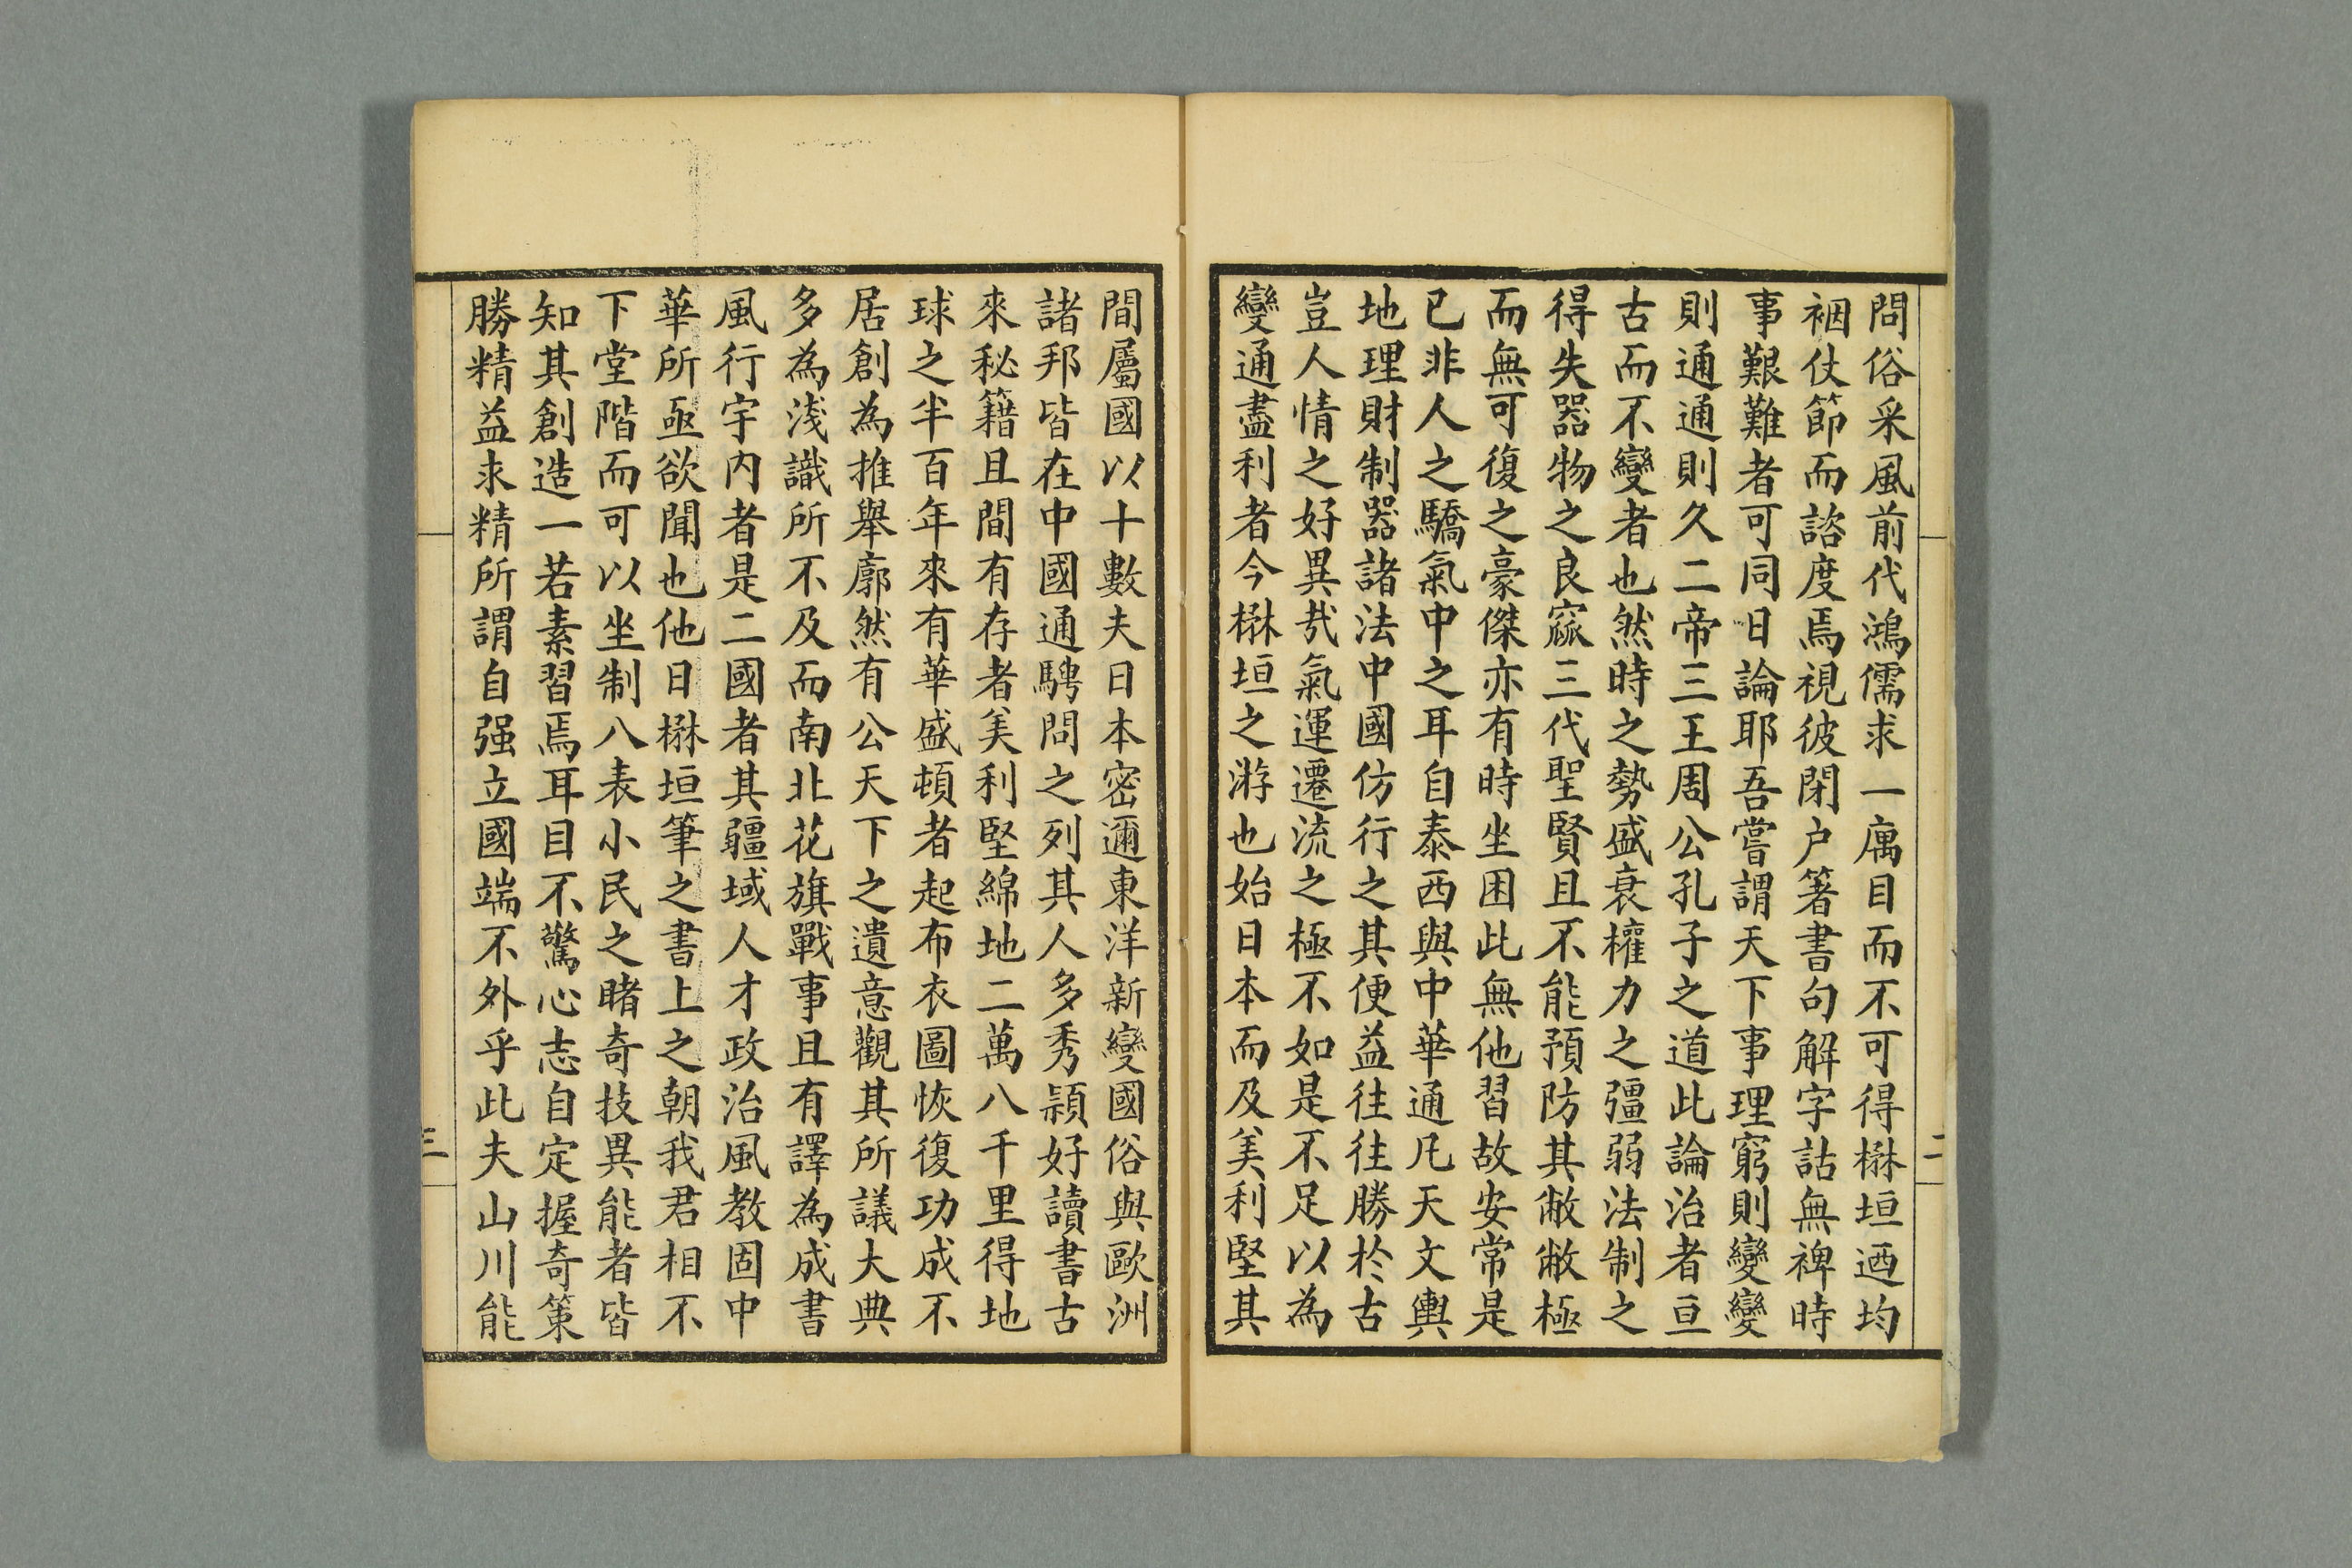 問俗采風前代鴻儒求一寓目而不可得楙垣迺均
裀仗節而諮度焉視彼閉户箸書句解字詁無裨時
事艱難者可同日論耶吾嘗謂天下事理窮則變變
則通通則久二帝三王周公孔子之道此論治者亘
古而不變者也然時之勢盛衰權力之彊弱法制之
得失器物之良窳三代聖賢且不能預防其敝敝極
而無可復之豪傑亦有時坐困此無他習故安常是
已非人之驕氣中之耳自泰西與中華通凡天文輿
地理財制器諸法中國仿行之其便益往往勝於古
豈人情之好異㢤氣運遷流之極不如是不足以為
變通盡利者今楙垣之游也始日本而及美利堅其
二
間屬國以十數夫日本密邇東洋新變國俗與歐洲
諸邦皆在中國通騁問之列其人多秀穎好讀書古
來秘籍且間有存者美利堅綿地二萬八千里得地
球之半百年來有華盛頓者起布衣圖恢復功成不
居創為推舉廓然有公天下之遺意觀其所議大典
多為淺識所不及而南北花旗戰事且有譯為成書
風行宇内者是二國者其疆域人才政治風教固中
華所亟欲聞也他日楙垣筆之書上之朝我君相不
下堂階而可以坐制八表小民之睹奇技異能者皆
知其創造一若素習焉耳目不驚心志自定握奇策
勝精益求精所謂自强立國端不外乎此夫山川能
三